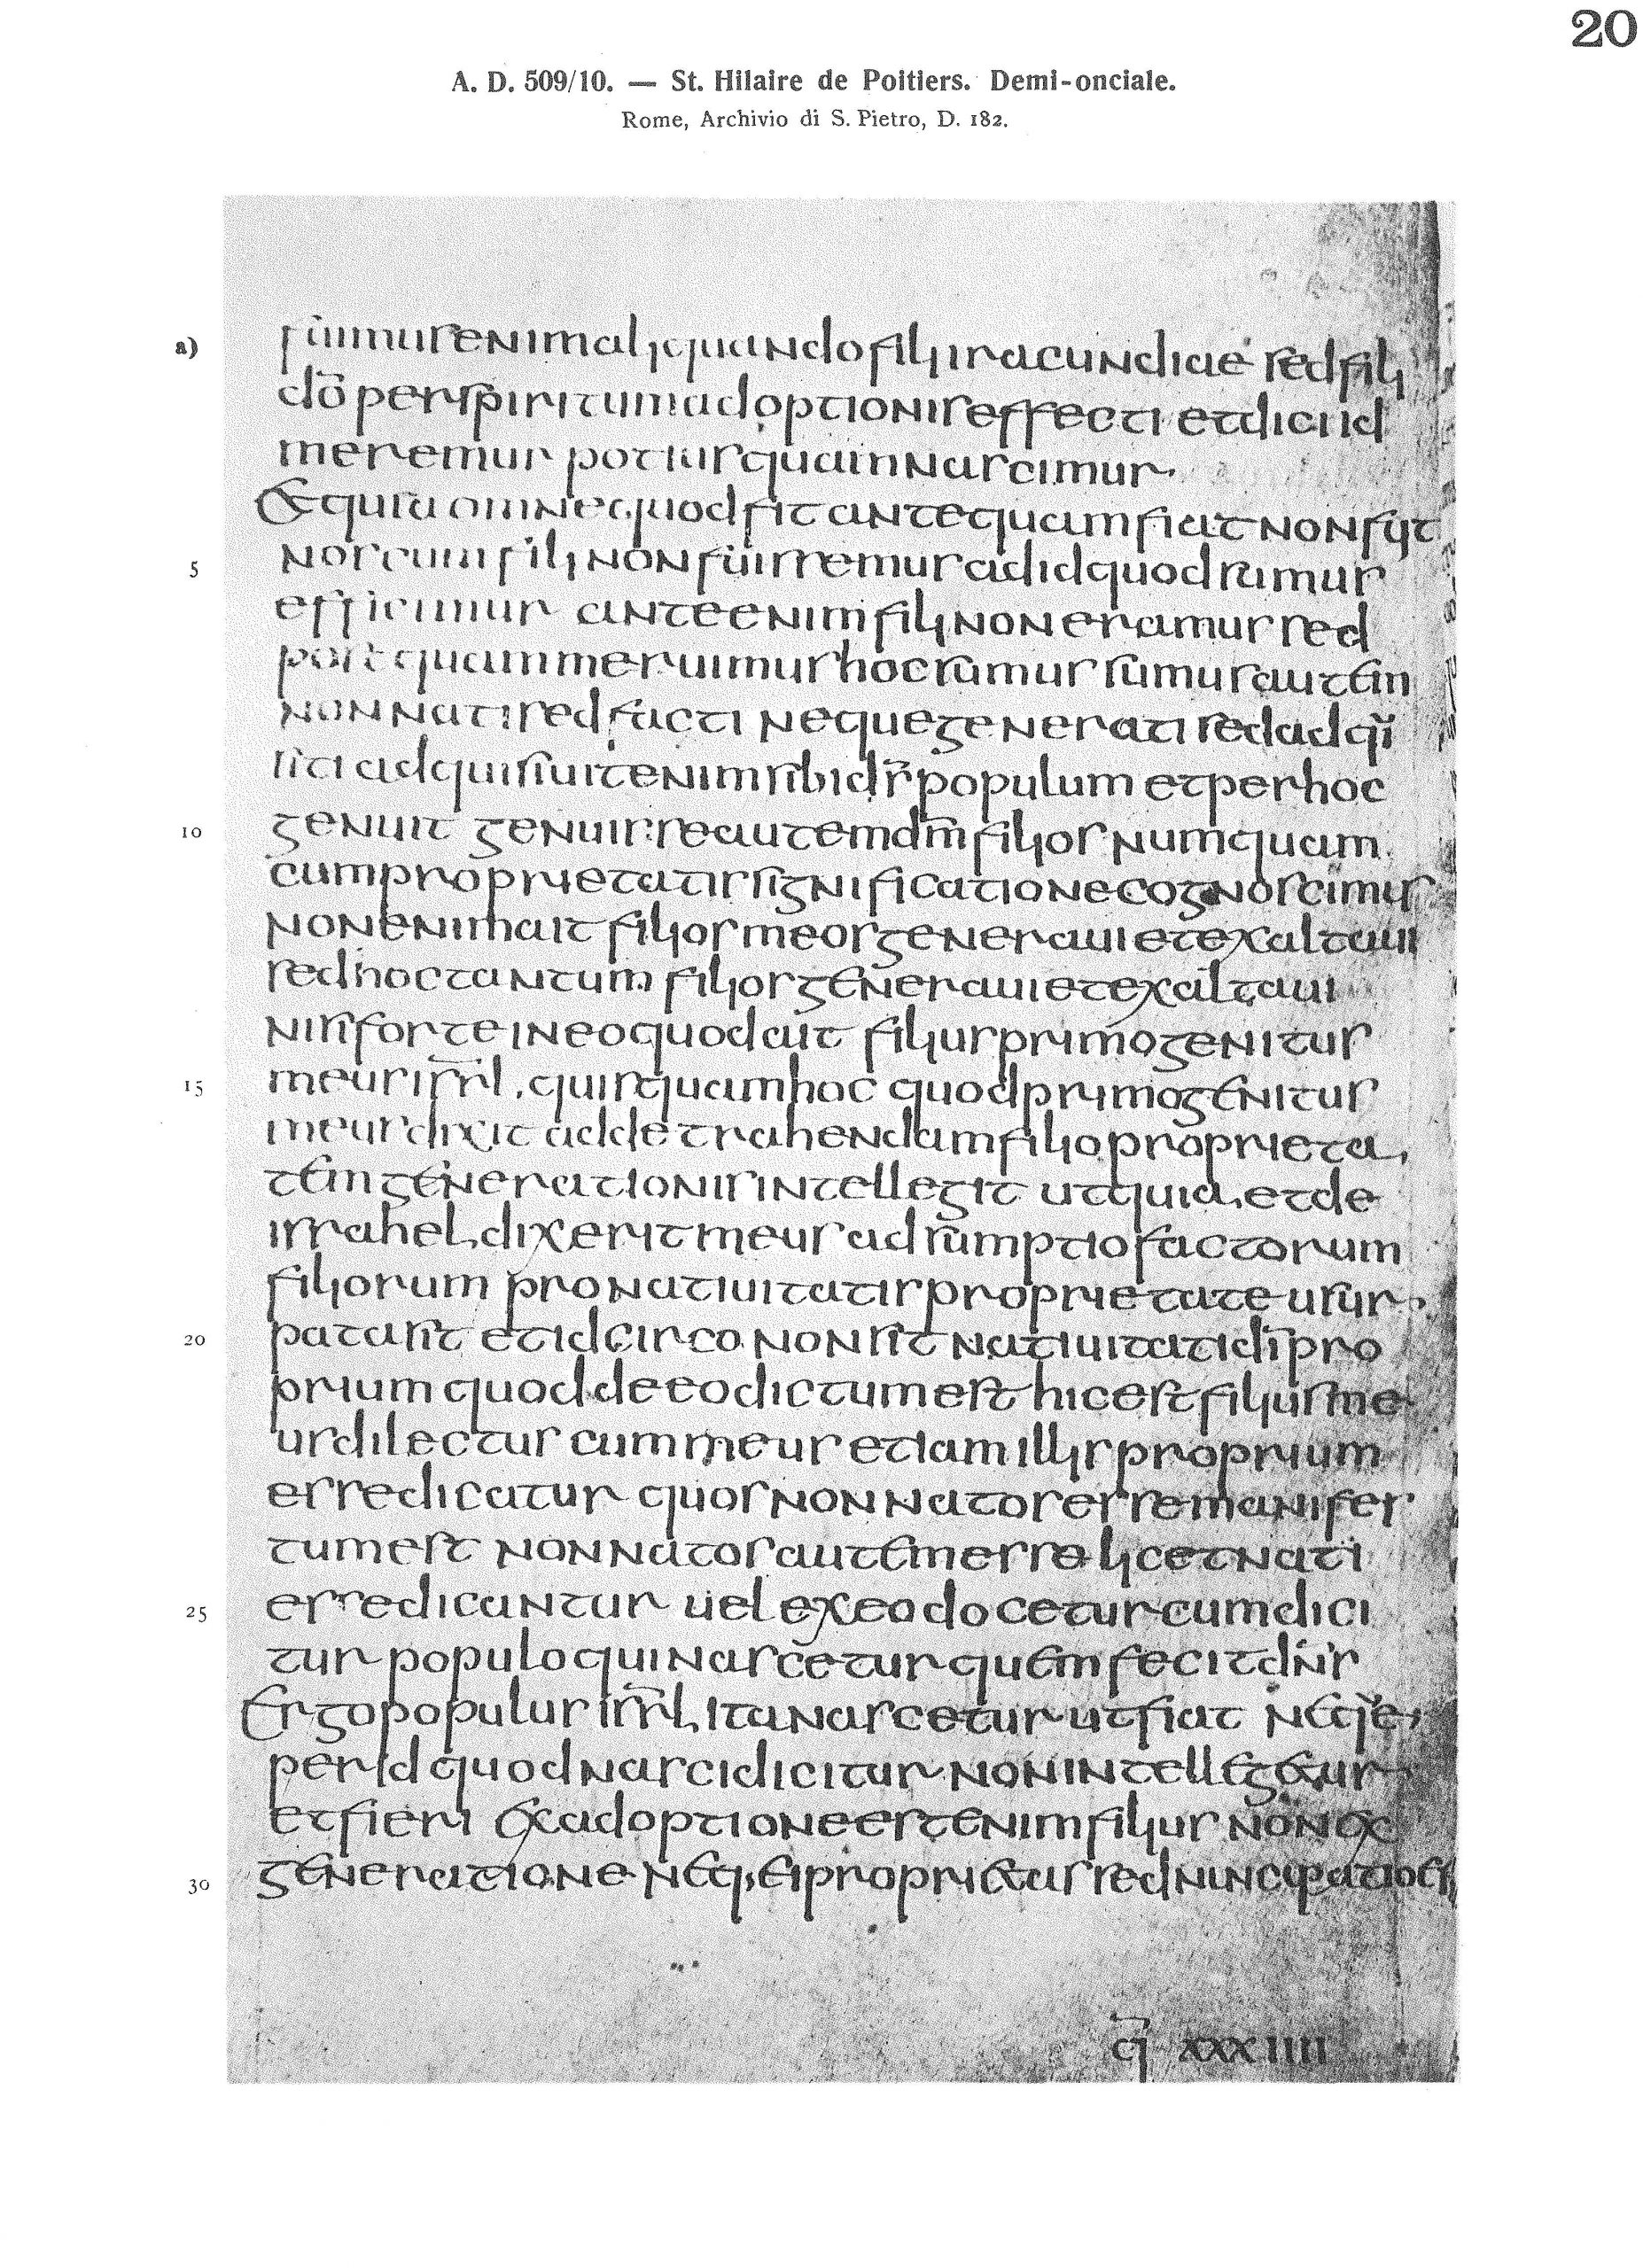 20
A. D. 509/10. — St. Hilaire de Poitiers. Demi-onciale.
Rome, Archivio di S. Pietro, D. 182.
a)
fuimus enim aliquando filii iracundiae sed filii
do̅ per spiritum adoptionis effecti et dici id
meremur potius quam nascimur
Et quia omne quod fit antequam fiat non fuit
5
nos cum filii non fuissemus ad id quod sumus
efficimur ante enim filii non eramus sed
postquam meruimus hoc sumus sumus autem
non nati sed facti neque generati sed adqui
siti adquisiuit enim sibi ds̅ populum et per hoc
10
genuit genuisse autem dm̅ filios numquam
cum proprietatis significatione cognoscimus
non enim ait filios meos generaui et exaltaui
sed hoc tantum filios generaui et exaltaui
nisi forte in eo quod ait filius primogenitus
15
meus isrl̅ . quisquam hoc quod primogenitus
meus dixit ad detrahendam filio proprieta
tem generationis intellegit ut quia et de
israhel dixerit meus adsumptio factorum
filiorum pro natiuitatis proprietate usur
20
pata sit et idcirco non sit natiuitati di̅ pro
prium quod de eo dictum est hic est filius me
us dilectus cum meus etiam illis proprium
esse dicatur quos non natos esse manifes
tum est non natos autem esse licet nati
25
esse dicantur uel ex eo docetur cum dici
tur populo qui nascetur quem fecit dn̅s
Ergo populus isrl̅ ita nascetur ut fiat neque
per id quod nasci dicitur non intellegetur
et fieri ex adoptione est enim filius non ex
30
generatione neq; ei proprietas sed nuncupatio est
q̅ xxxiiii